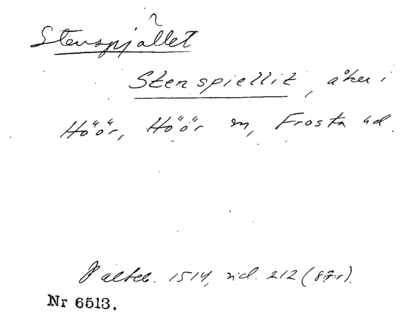 ?
Stenspjället
Stenspiellit, åker i
Höör, Höör sn, Frosta hd.
Pälteb. 1514, sid. 212 (87r).
Nr 6513.